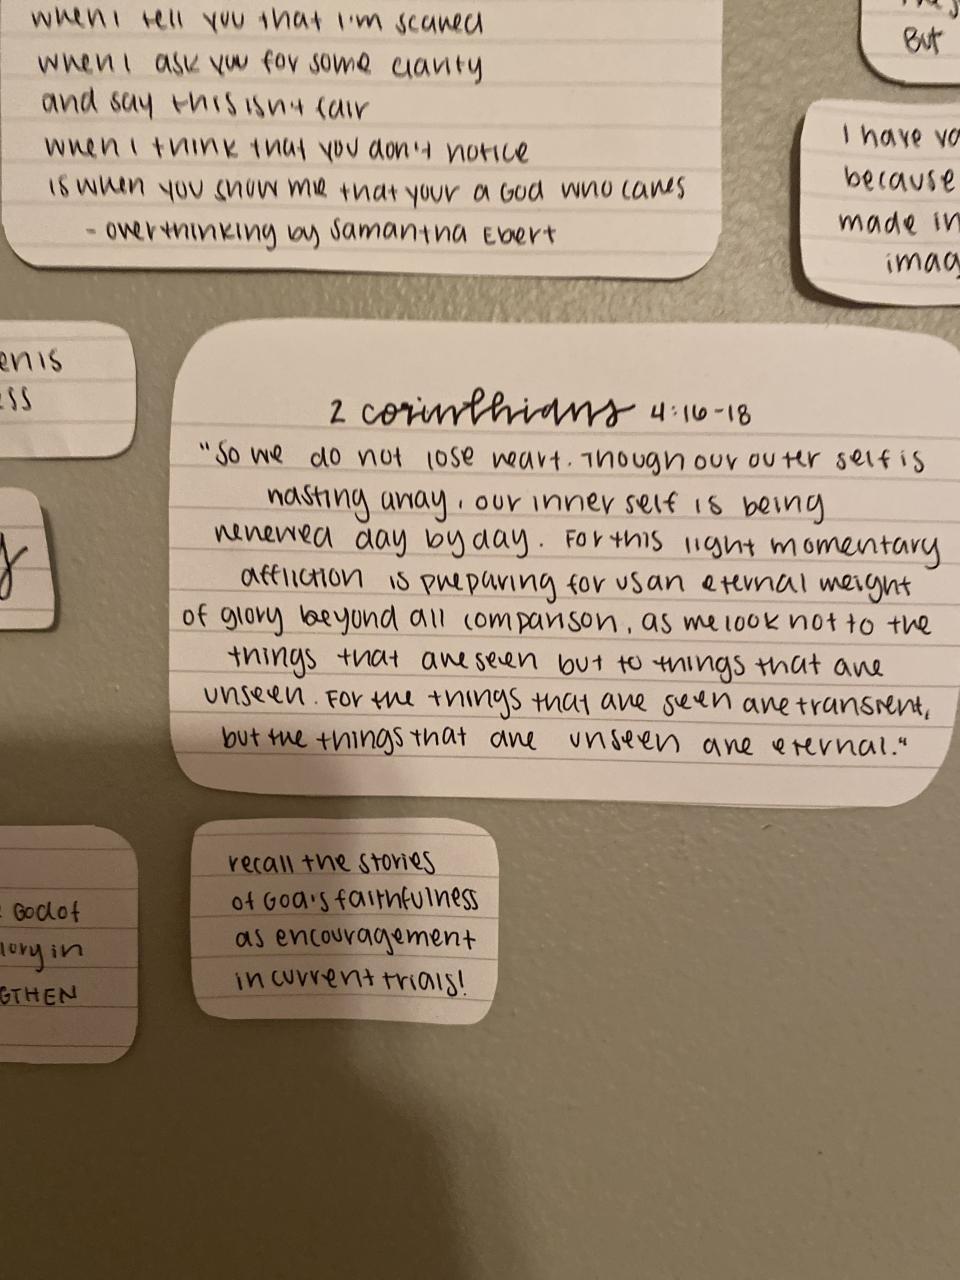 when I tell you that I'm scared
when I ask you for some clarity
and say this isn't fair
when I think that you don't notice
is when you show me that your a God who cares
- overthinking by Samantha Ebert
But
I have va
because
made in
imag
en is
ess
2 corinthians 4:16-18
"So we do not lose heart. Though our outer self is
wasting away, our inner self is being
renewed day by day. For this light momentary
affliction is preparing for us an eternal weight
of glory beyond all comparison, as we look not to the
things that are seen but to things that are
unseen. For the things that are seen are transient,
but the things that are unseen are eternal."
y
God of
lory in
GTHEN
recall the stories
of God's faithfulness
as encouragement
in current trials!